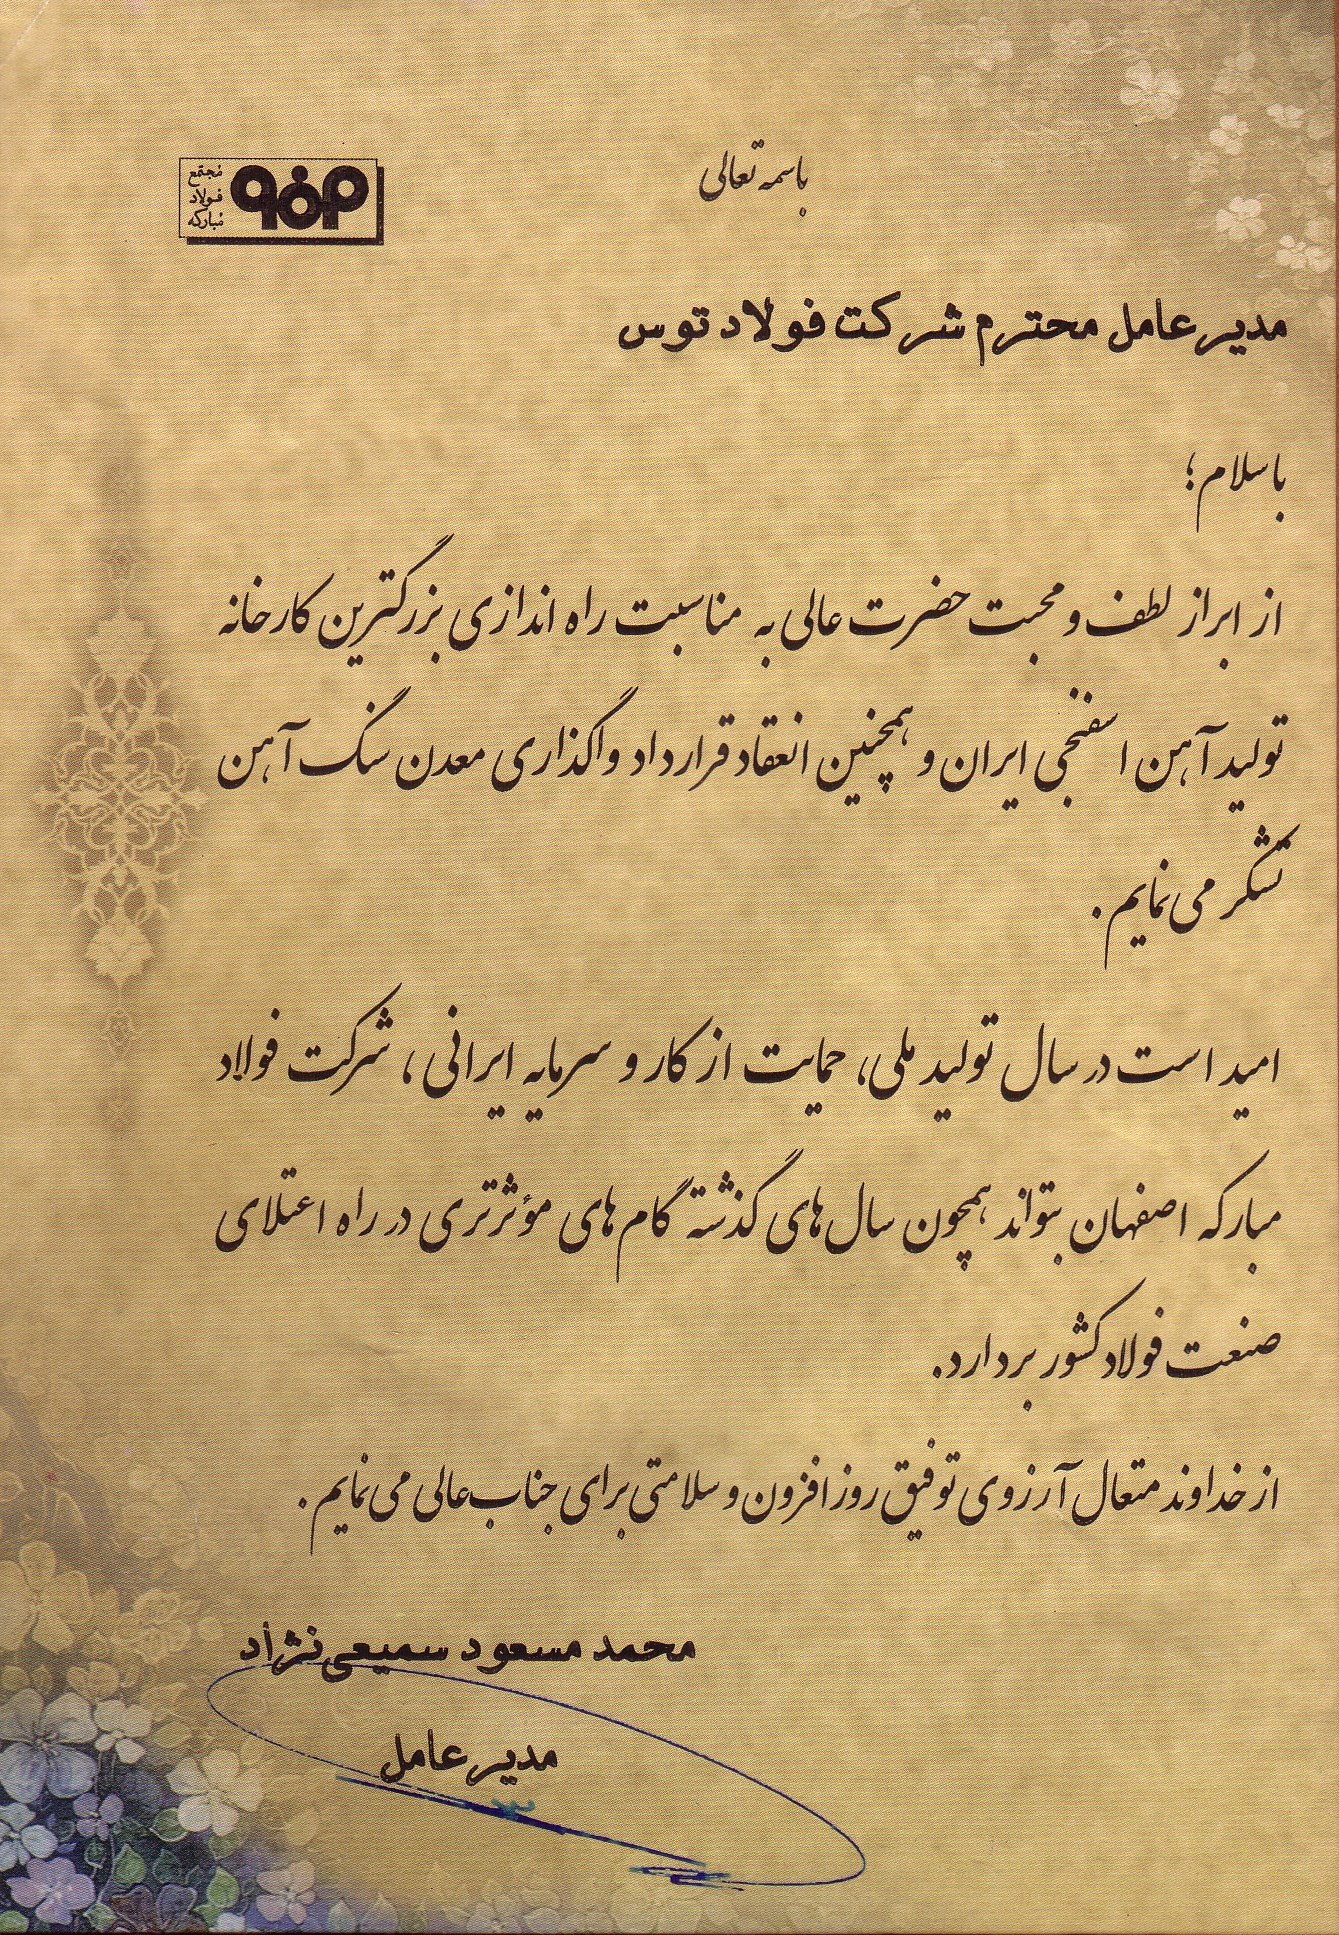 باسمه تعالی
مجتمع
فولاد
مبارکه
مدیر عامل محترم شرکت فولاد توس
با سلام؛
از ابراز لطف و محبت حضرت عالی به مناسبت راه اندازی بزرگترین کارخانه
تولید آهن اسفنجی ایران و همچنین انعقاد قرارداد واگذاری معدن سنگ آهن
تشکر می نمایم.
امید است در سال تولید ملی، حمایت از کار و سرمایه ایرانی، شرکت فولاد
مبارکه اصفهان بتواند همچون سال های گذشته گام های مؤثرتری در راه اعتلای
صنعت فولاد کشور بردارد.
از خداوند متعال آرزوی توفیق روزافزون و سلامتی برای جناب عالی می نمایم.
محمد مسعود سمیعی نژاد
مدیر عامل